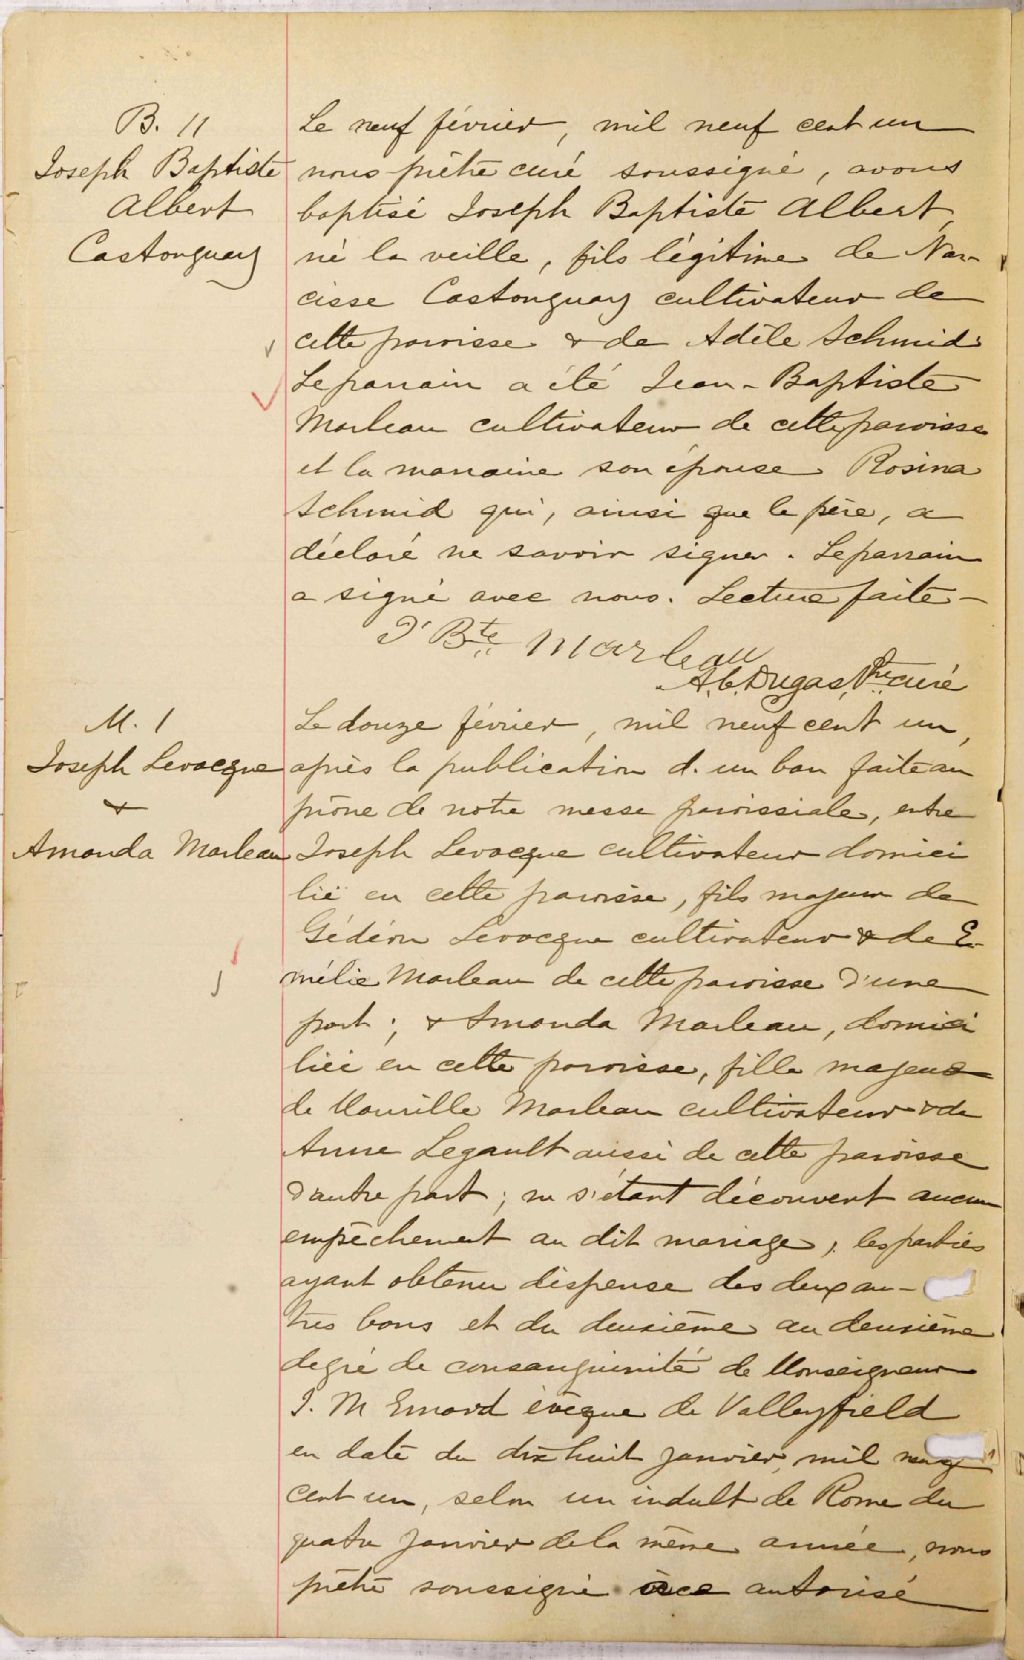 B. 11
Joseph Baptiste
Albert
Castonguay
Le neuf février, mil neuf cent un
nous prêtre curé soussigné, avons
baptisé Joseph Baptiste Albert,
né la veille, fils légitime de Nar-
cisse Castonguay cultivateur de
cette paroisse & de Adèle Schmid.
Le parrain a été Jean-Baptiste
Marleau cultivateur de cette paroisse
et la marraine son épouse Rosina
Schmid qui, ainsi que le père, a
déclaré ne savoir signer. Le parrain
a signé avec nous. Lecture faite -
J Bte Marleau
A. C. Dugas, Ptre curé
M. 1
Joseph Levacque
&
Amanda Marleau
Le douze février, mil neuf cent un,
après la publication d'un ban faite au
prône de notre messe paroissiale, entre
Joseph Levacque cultivateur domici
lié en cette paroisse, fils majeur de
Gédéon Levacque cultivateur & de E-
mélie Marleau de cette paroisse d'une
part; & Amanda Marleau, domici
liée en cette paroisse, fille majeure
de Maurille Marleau cultivateur & de
Anne Legault aussi de cette paroisse
d'autre part; ne s'étant découvert aucun
empêchement au dit mariage, les parties
ayant obtenu dispense des deux au-
tres bans et du deuxième au deuxième
degré de consanguinité de Monseigneur
J. M Emard évêque de Valleyfield
en date du dix huit janvier, mil neuf
cent un, selon un indult de Rome du
quatre janvier de la même année, nous
prêtre soussigné à ce autorisé